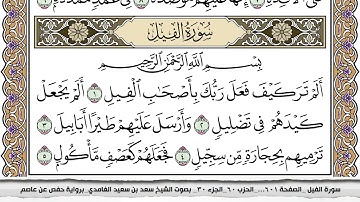 عَلَى ٱلْأَفْـِٔدَةِ ٧ إِنَّهَا عَلَيْهِم مُّؤْصَدَةٌ ٨ فِى عَمَدٍ مُّمَدَّدَةٍۭ ٩
سُورَةُ الفِيلِ
بِسْمِ ٱللَّهِ ٱلرَّحْمَٰنِ ٱلرَّحِيمِ
أَلَمْ تَرَ كَيْفَ فَعَلَ رَبُّكَ بِأَصْحَٰبِ ٱلْفِيلِ ١ أَلَمْ يَجْعَلْ
كَيْدَهُمْ فِى تَضْلِيلٍ ٢ وَأَرْسَلَ عَلَيْهِمْ طَيْرًا أَبَابِيلَ ٣
تَرْمِيهِم بِحِجَارَةٍ مِّن سِجِّيلٍ ٤ فَجَعَلَهُمْ كَعَصْفٍ مَّأْكُولٍۭ ٥
سورة الفيل _الصفحة ٦٠١_... الحزب ٦٠_الجزء ٣٠_ بصوت الشيخ سعد بن سعيد الغامدي_ برواية حفص عن عاصم